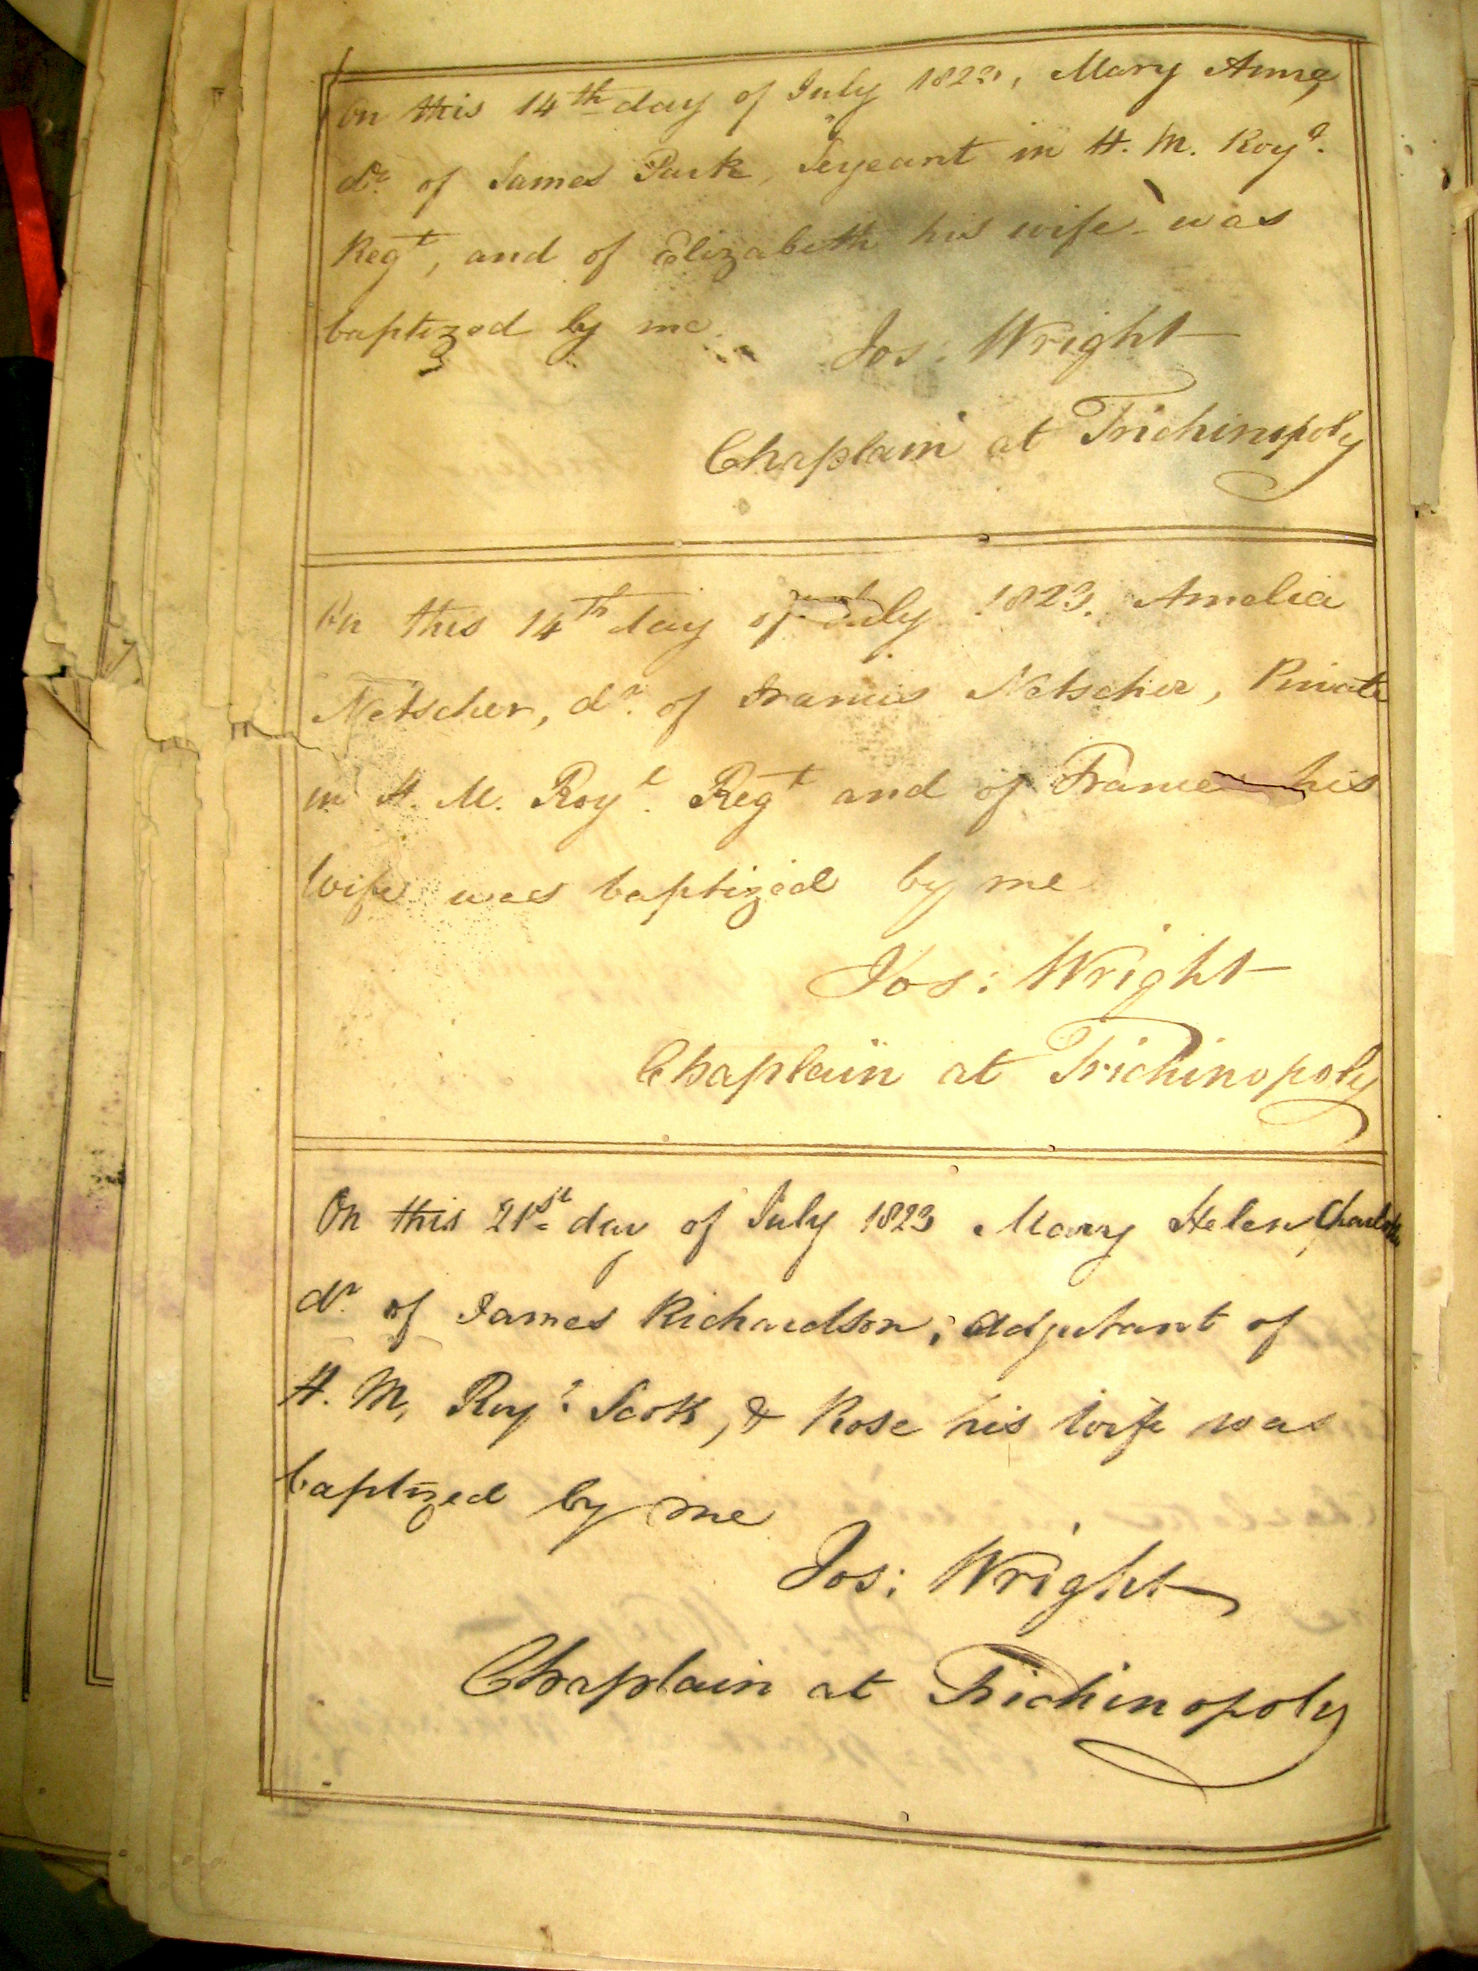 On this 14th day of July 1823, Mary Anne,
dr. of James Park, Serjeant in H. M. Royl.
Regt, and of Elizabeth his wife was
baptized by me.
Jos: Wright
Chaplain at Trichinopoly
On this 14th day of July 1823. Amelia
Netscher, dr. of Francis Netscher, Private
in H. M. Royl. Regt and of France his
Wife was baptized by me
Jos: Wright
Chaplain at Trichinopoly
On this 21st day of July 1823 Mary Helen Charlotte
dr. of James Richardson, Adjutant of
H. M. Royl. Scots, & Rose his Wife was
baptized by me
Jos: Wright
Chaplain at Trichinopoly